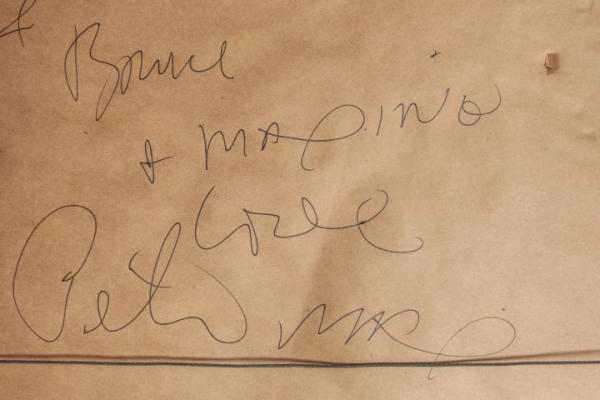 Bruce
+ MAXINE
Love
Peter MAX